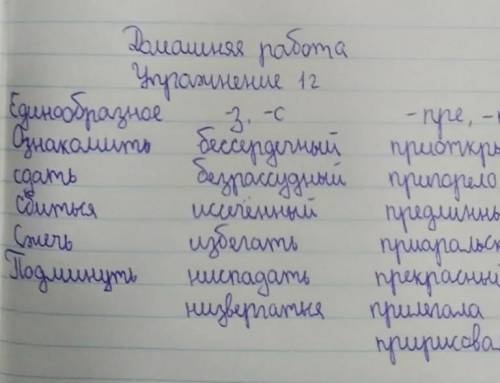 Домашняя работа
Упражнение 12
Единообразное -з, -с -пре, -
Ознакомить бессердечный приоткры
сдать безрассудный пригорело
сбиться иссечённый предлинны
Сжечь избегать приаральск
Подминуть ниспадать прекрасный
низвергаться прилегала
пририсовал